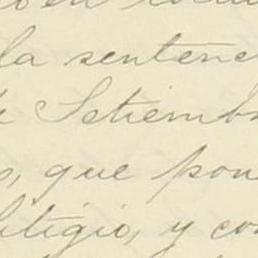 la sentenc
Setiemb
que pon
litigio, y con